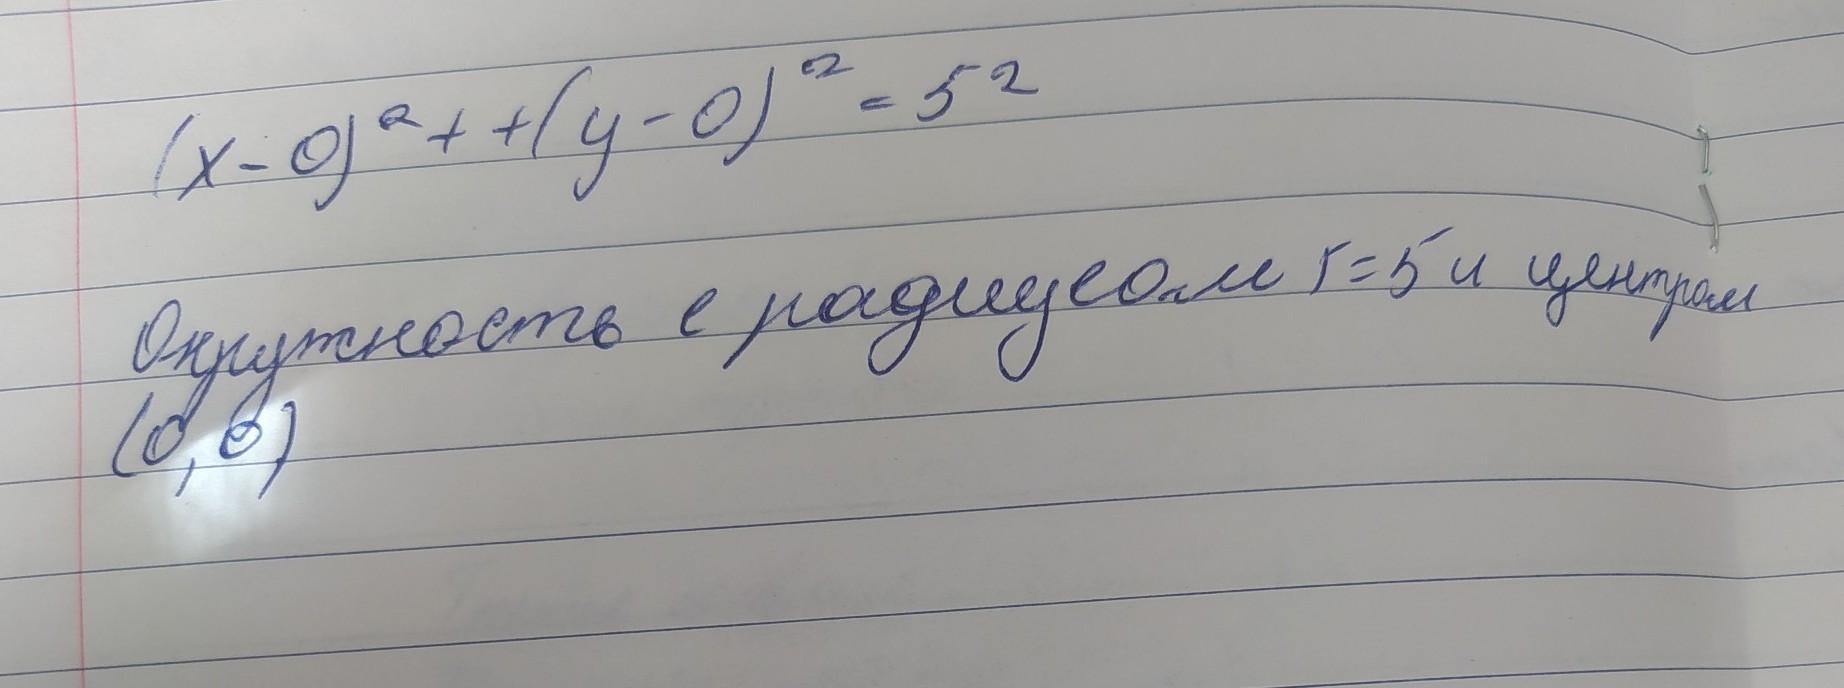 (x-0)²++(y-0)²=5²
Окружность с радиусом r=5 и центром
(0,0)